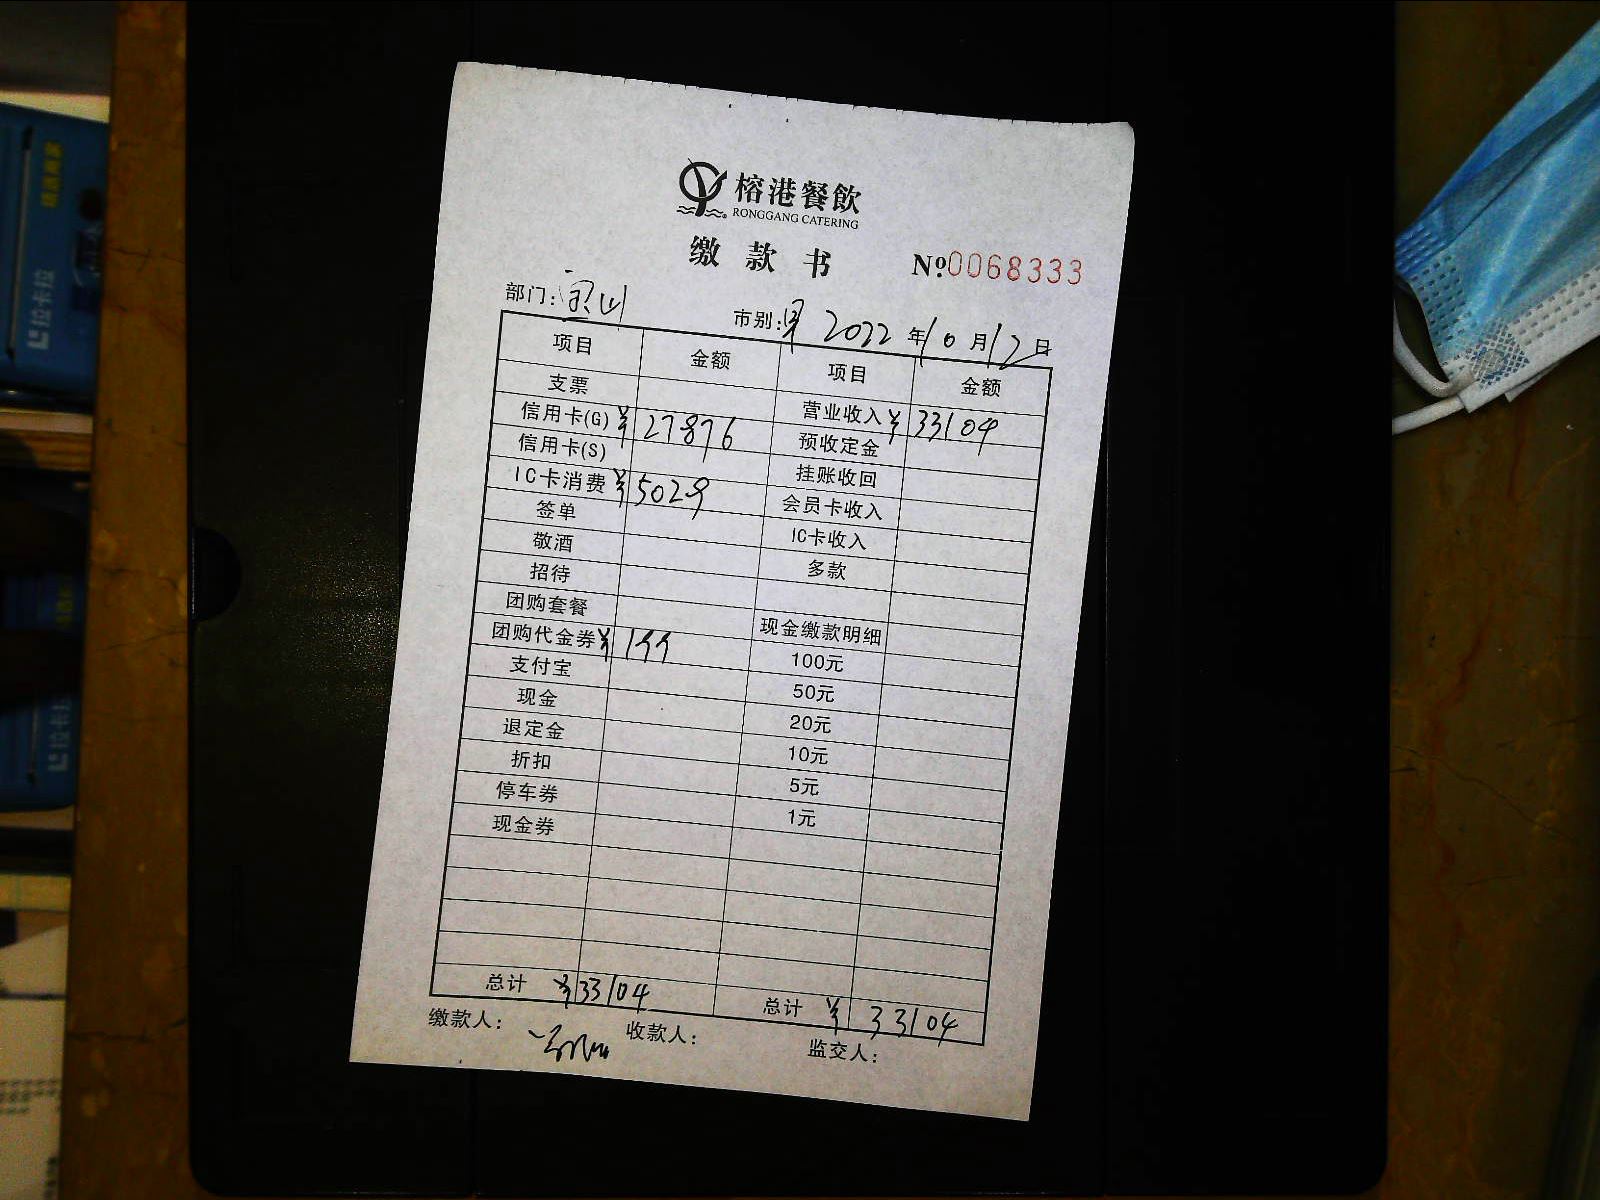 榕港餐飲
RONGGANG CATERING
缴款书 №0068333
部门: 宝山 市别: 2022年10月12日
项目 金额 项目 金额
支票 营业收入 ¥33104
信用卡(G) ¥27876 预收定金
信用卡(S) 挂账收回
IC卡消费 ¥5029 会员卡收入
签单 IC卡收入
敬酒 多款
招待
团购套餐 现金缴款明细
团购代金券 ¥199 100元
支付宝 50元
现金 20元
退定金 10元
折扣 5元
停车券 1元
现金券
总计 ¥33104 总计 ¥33104
缴款人: 收款人: 监交人:
拉卡拉
拉卡拉